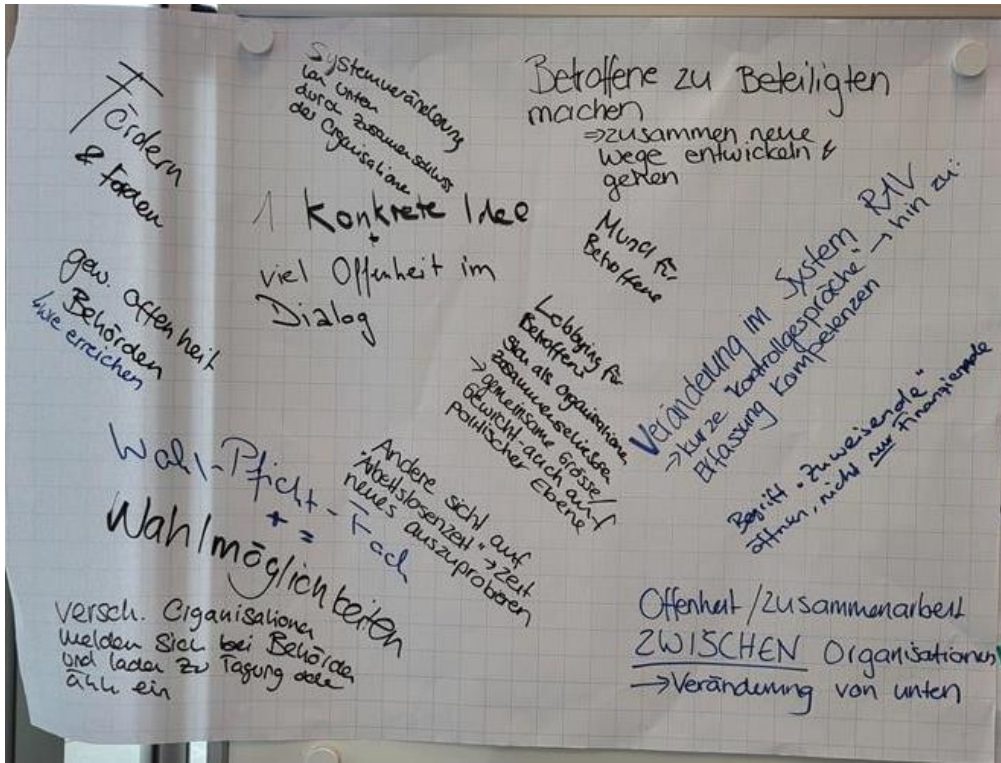 Fördern
& fordern
Systemveränderung
von unten
durch Zusammenschluss
der Organisatione
Betroffene zu Beteiligten
machen
⇒ zusammen neue
Wege entwickeln &
gehen
1 Konkrete Idee
+
viel Offenheit im
Dialog
Mund für
Betroffene
gew. Offenheit
Behörden
↳ wie erreichen
Lobbying für
Betroffene
sich als Organisationen
zusammenschliessen
→ gemeinsame Grösse/
Gewicht - auch auf
politischer Ebene
Veränderung im System RAV
→ kurze "Kontrollgespräche" → hin zu:
Erfassung Kompetenzen
Begriff "Zuweisende"
öffnen, nicht nur Finanzierende
Wahl-Pficht-Fach
+ =
Wahlmöglichkeiten
Andere sicht auf
"Arbeitslosenzeit" → Zeit
neues auszuprobieren
versch. Organisationen
melden sich bei Behörden
und laden zu Tagung oder
ähnl ein
Offenheit/Zusammenarbeit
ZWISCHEN Organisationen
→ Veränderung von unten